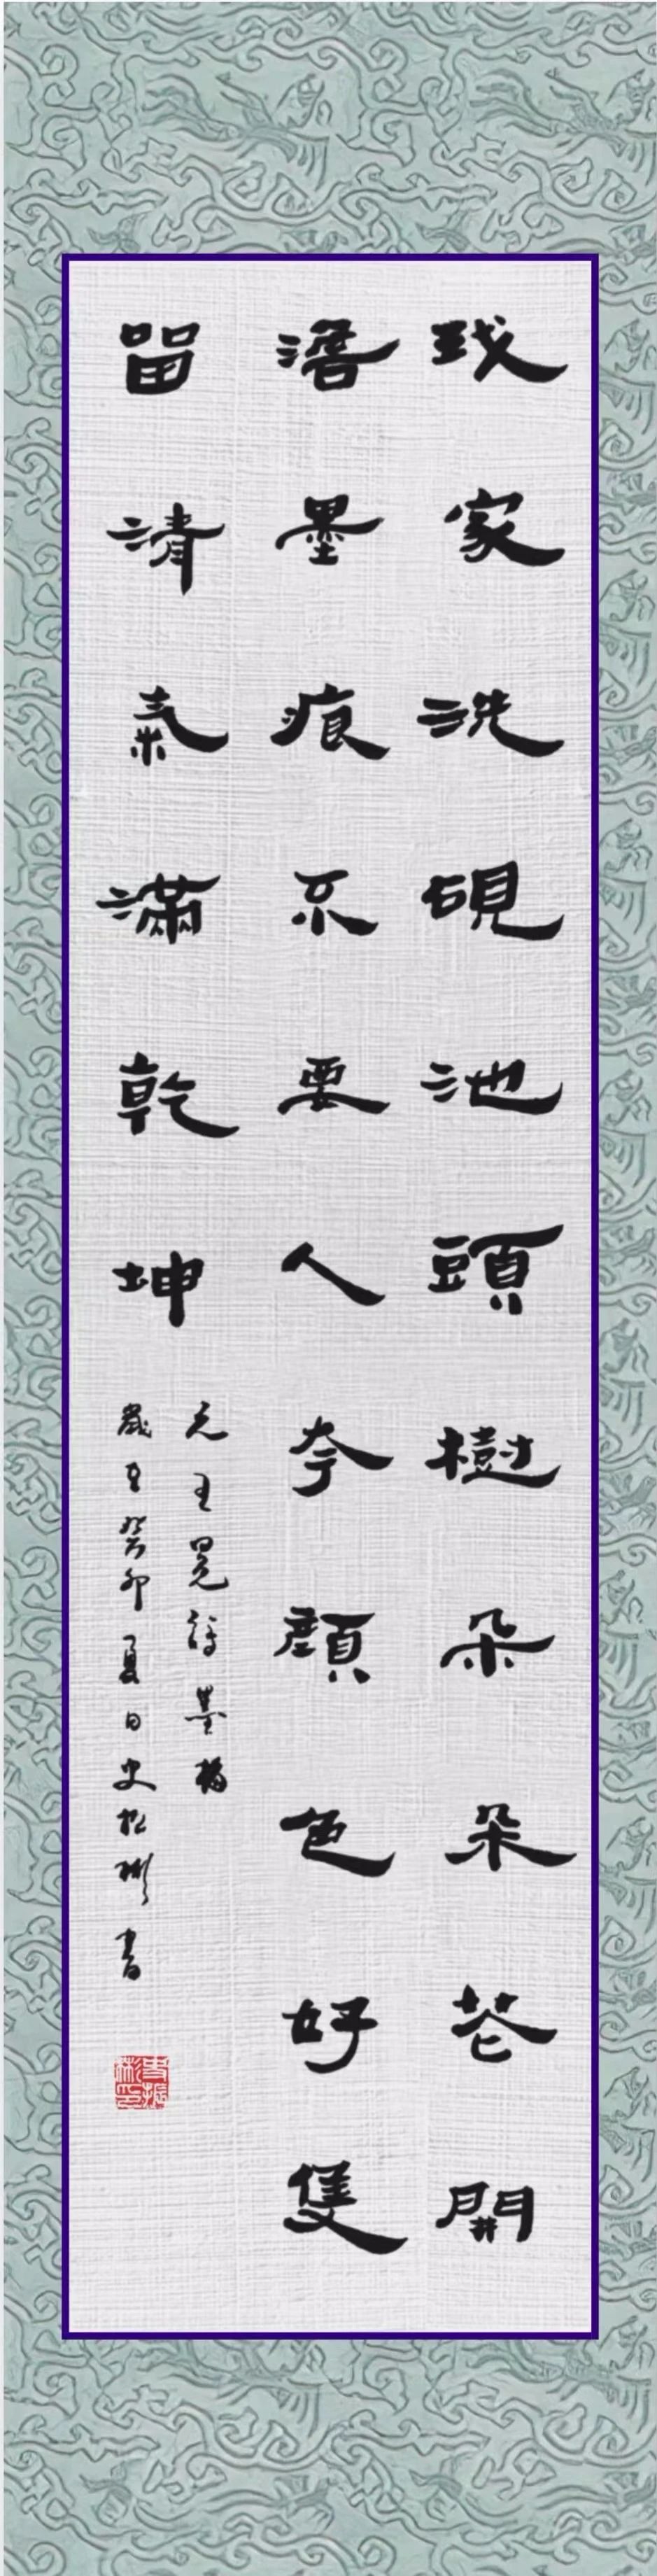 我家洗硯池頭樹朵朵花開
澹墨痕不要人夸顏色好隻
留清氣滿乾坤
元王冕詩墨梅
歲在癸卯夏日史振彬書
史振彬印